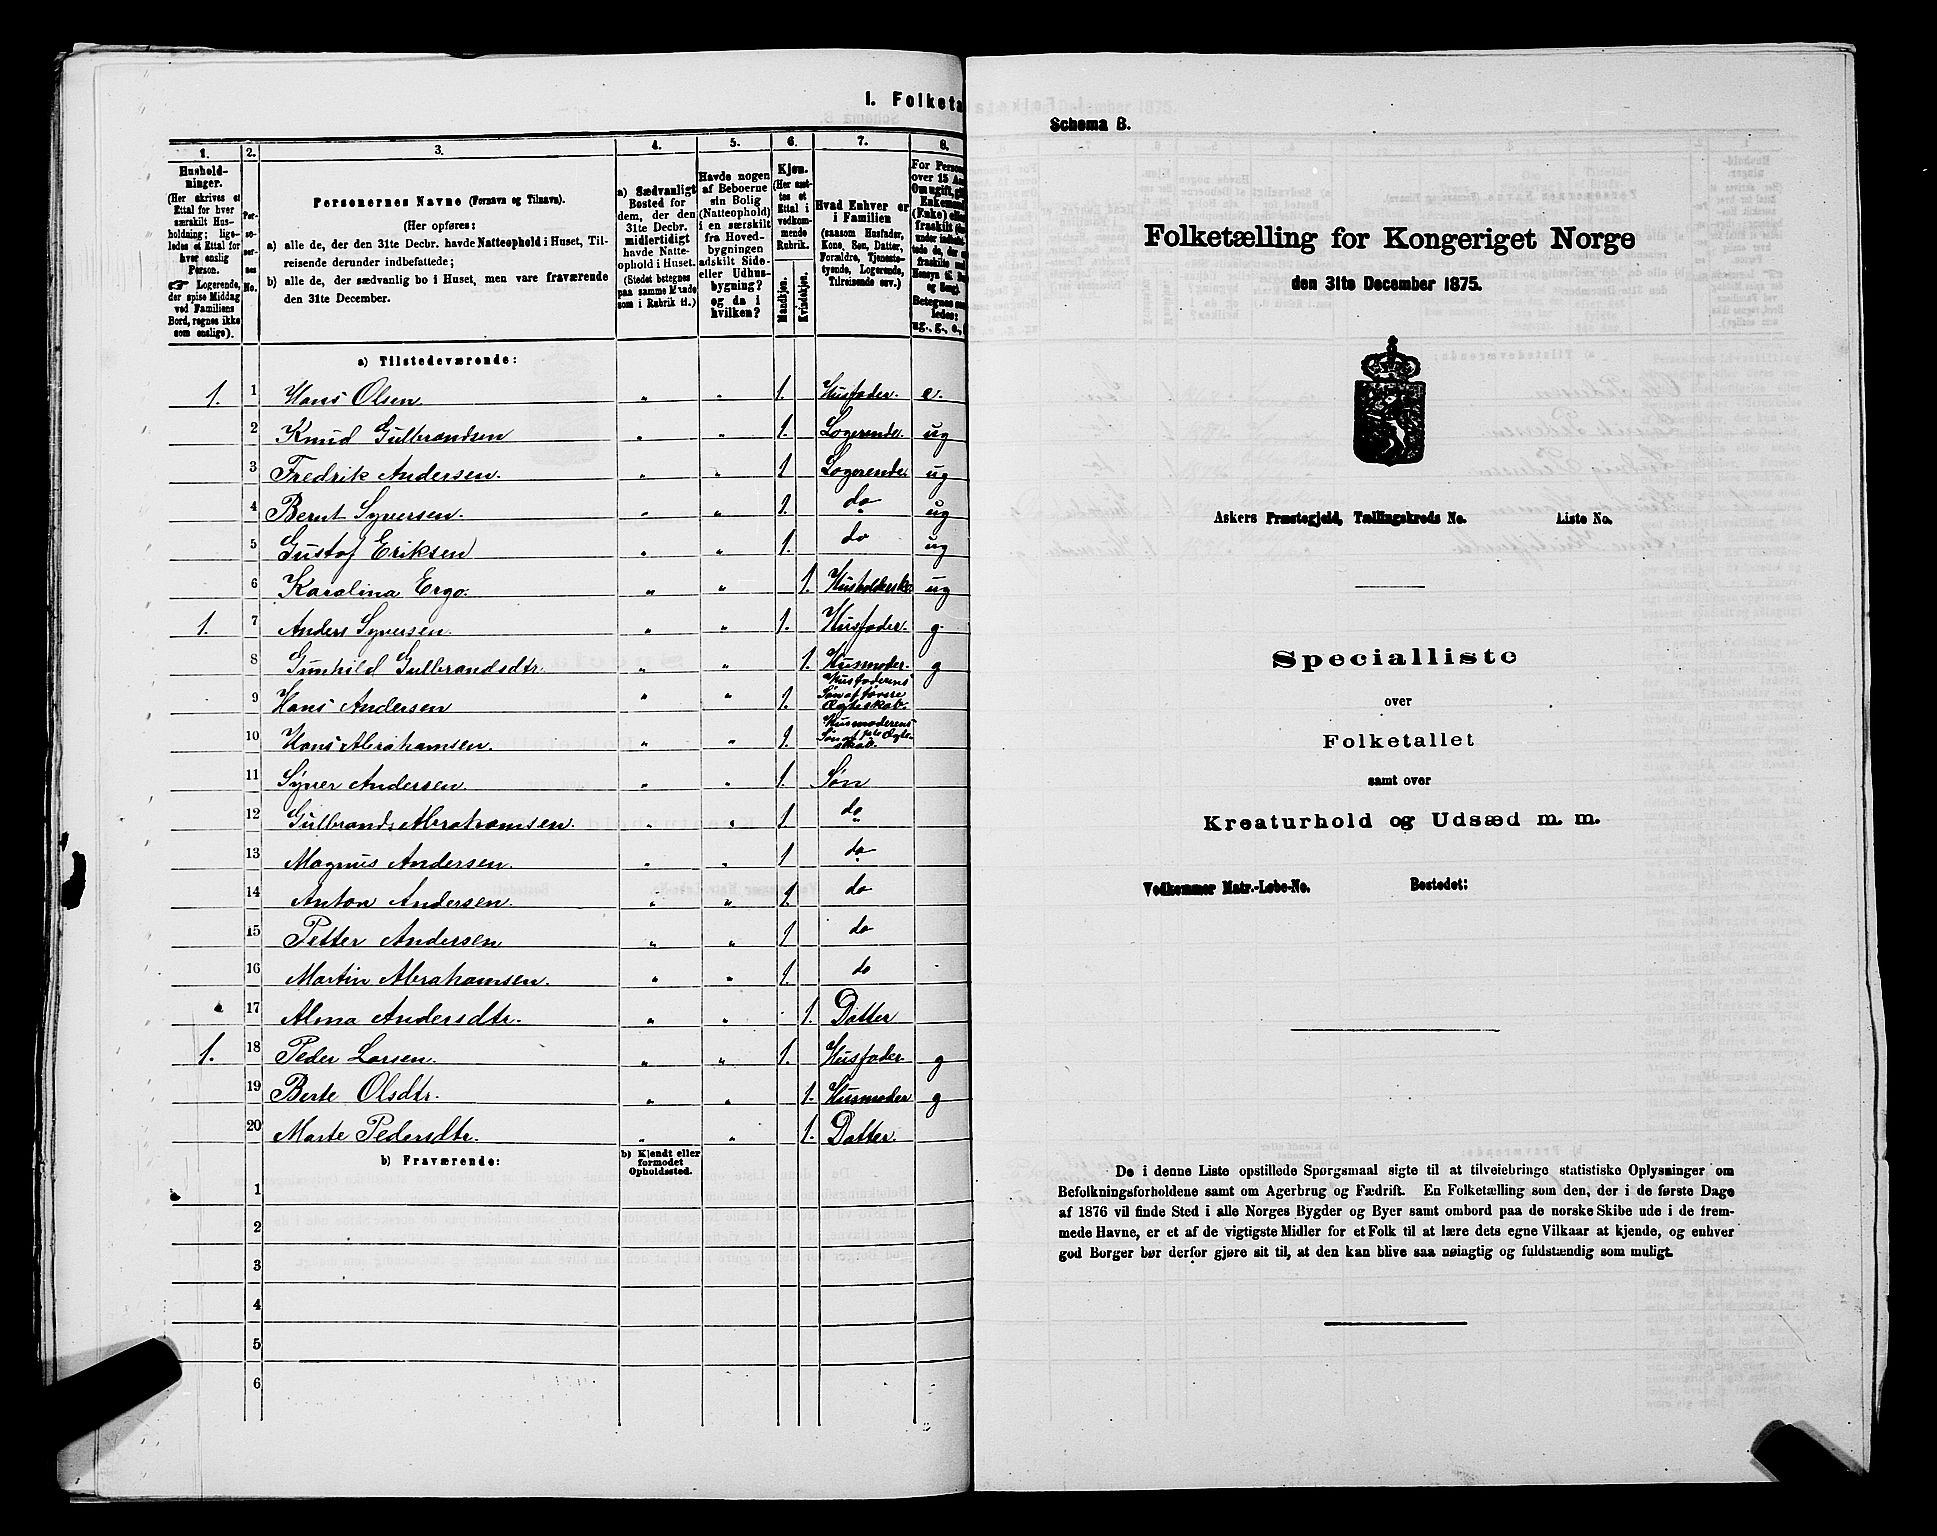 I. Folketa
1. 2. 3. 4. 5. 6. 7. 8.
Hushold-
ninger.
(Her skrives et
Ettal for hver
særskilt Hus-
holdning; lige-
ledes et Ettal for
hver enslig
Person.
☞ Logerende,
der spise Middag
ved Familiens
Bord, regnes ikke
som enslige).
Per-
so-
ner-
nes
No.
Personernes Navne (Fornavn og Tilnavn).
(Her opføres:
a) alle de, der den 31te Decbr. havde Natteophold i Huset, Til-
reisende derunder indbefattede;
b) alle de, der sædvanlig bo i Huset, men vare fraværende
den 31te December.
a) Sædvanligt
Bosted for
dem, der den
31te Decbr.
midlertidigt
havde Natte-
ophold i Huset.
(Stedet betegnes
paa samme Maade
som i Rubrik 11.)
Havde nogen
af Beboerne
sin Bolig
(Natteophold)
i en særskilt
fra Hoved-
bygningen
adskilt Side-
eller Udhus-
bygning?
og da i
hvilken?
Kjøn.
(Her sæt-
tes et
Ettal i
vedkom-
mende
Rubrik.
Mandkjøn.
Kvindekjøn.
Hvad Enhver er
i Familien
(saasom Husfader,
Kone, Søn, Datter,
Forældre, Tjeneste-
tyende, Logerende,
Tilreisende osv.)
For Person
over 15 Aa
Om ugift, gif
Enkemand
(Enke) elle
fraskilt
Betegnes saa
ledes:
ug., g., e.,
a) Tilstedeværende:
1. 1 Hans Olsen. " " 1. Husfader. e.
2 Knud Gulbrandsen " " 1. Logerende. ug
3 Fredrik Andersen. " " 1 Logerende. ug
4 Bernt Syversen. " " 1. do ug
5 Gustaf Eriksen " " 1. do ug
6 Karolina Ergo. " " 1. Husholderske ug
1. 7 Anders Syversen. " " 1. Husfader. g.
8 Gunhild Gulbrandsdtr. " " 1. Husmoder. g
9 Hans Andersen " " 1. Husfaderens Søn af forrre Ægteskab.
10 Hans Abrahamsen. " " 1. Husmoderens Søn af 1ste Ægteskab.
11 Syver Andersen. " " 1. Søn
12 Gulbrands Abrahamsen. " " 1 do
13 Magnus Andersen. " " 1 do
14 Anton Andersen. " " 1. do
15 Petter Andersen " " 1 do
16 Martin Abrahamsen. " " 1. do
17 Alma Andersdtr. " " 1. Datter
1. 18 Peder Larsen. " " 1. Husfader g
19 Berte Olsdtr. " " 1. Husmoder g
20 Marte Pedersdtr. " " 1. Datter.
b) Fraværende:
b) Kjendt eller
formodet
Opholdssted.
1
2
3
4
5
6
Schema B.
Folketælling for Kongeriget Norge
den 31te December 1875.
Askers Præstegjeld, Tællingskreds No. Liste No.
Specialliste
over
Folketallet
samt over
Kreaturhold og Udsæd m. m.
Vedkommer Matr.-Løbe-No. Bostedet:
De i denne Liste opstillede Spørgsmaal sigte til at tilveiebringe statistiske Oplysninger om
Befolkningsforholdene samt om Agerbrug og Fædrift. En Folketælling som den, der i de første Dage
af 1876 vil finde Sted i alle Norges Bygder og Byer samt ombord paa de norske Skibe ude i de frem-
mede Havne, er et af de vigtigste Midler for et Folk til at lære dets egne Vilkaar at kjende, og enhver
god Borger bør derfor gjøre sit til, at den kan blive saa nøiagtig og fuldstændig som muligt.